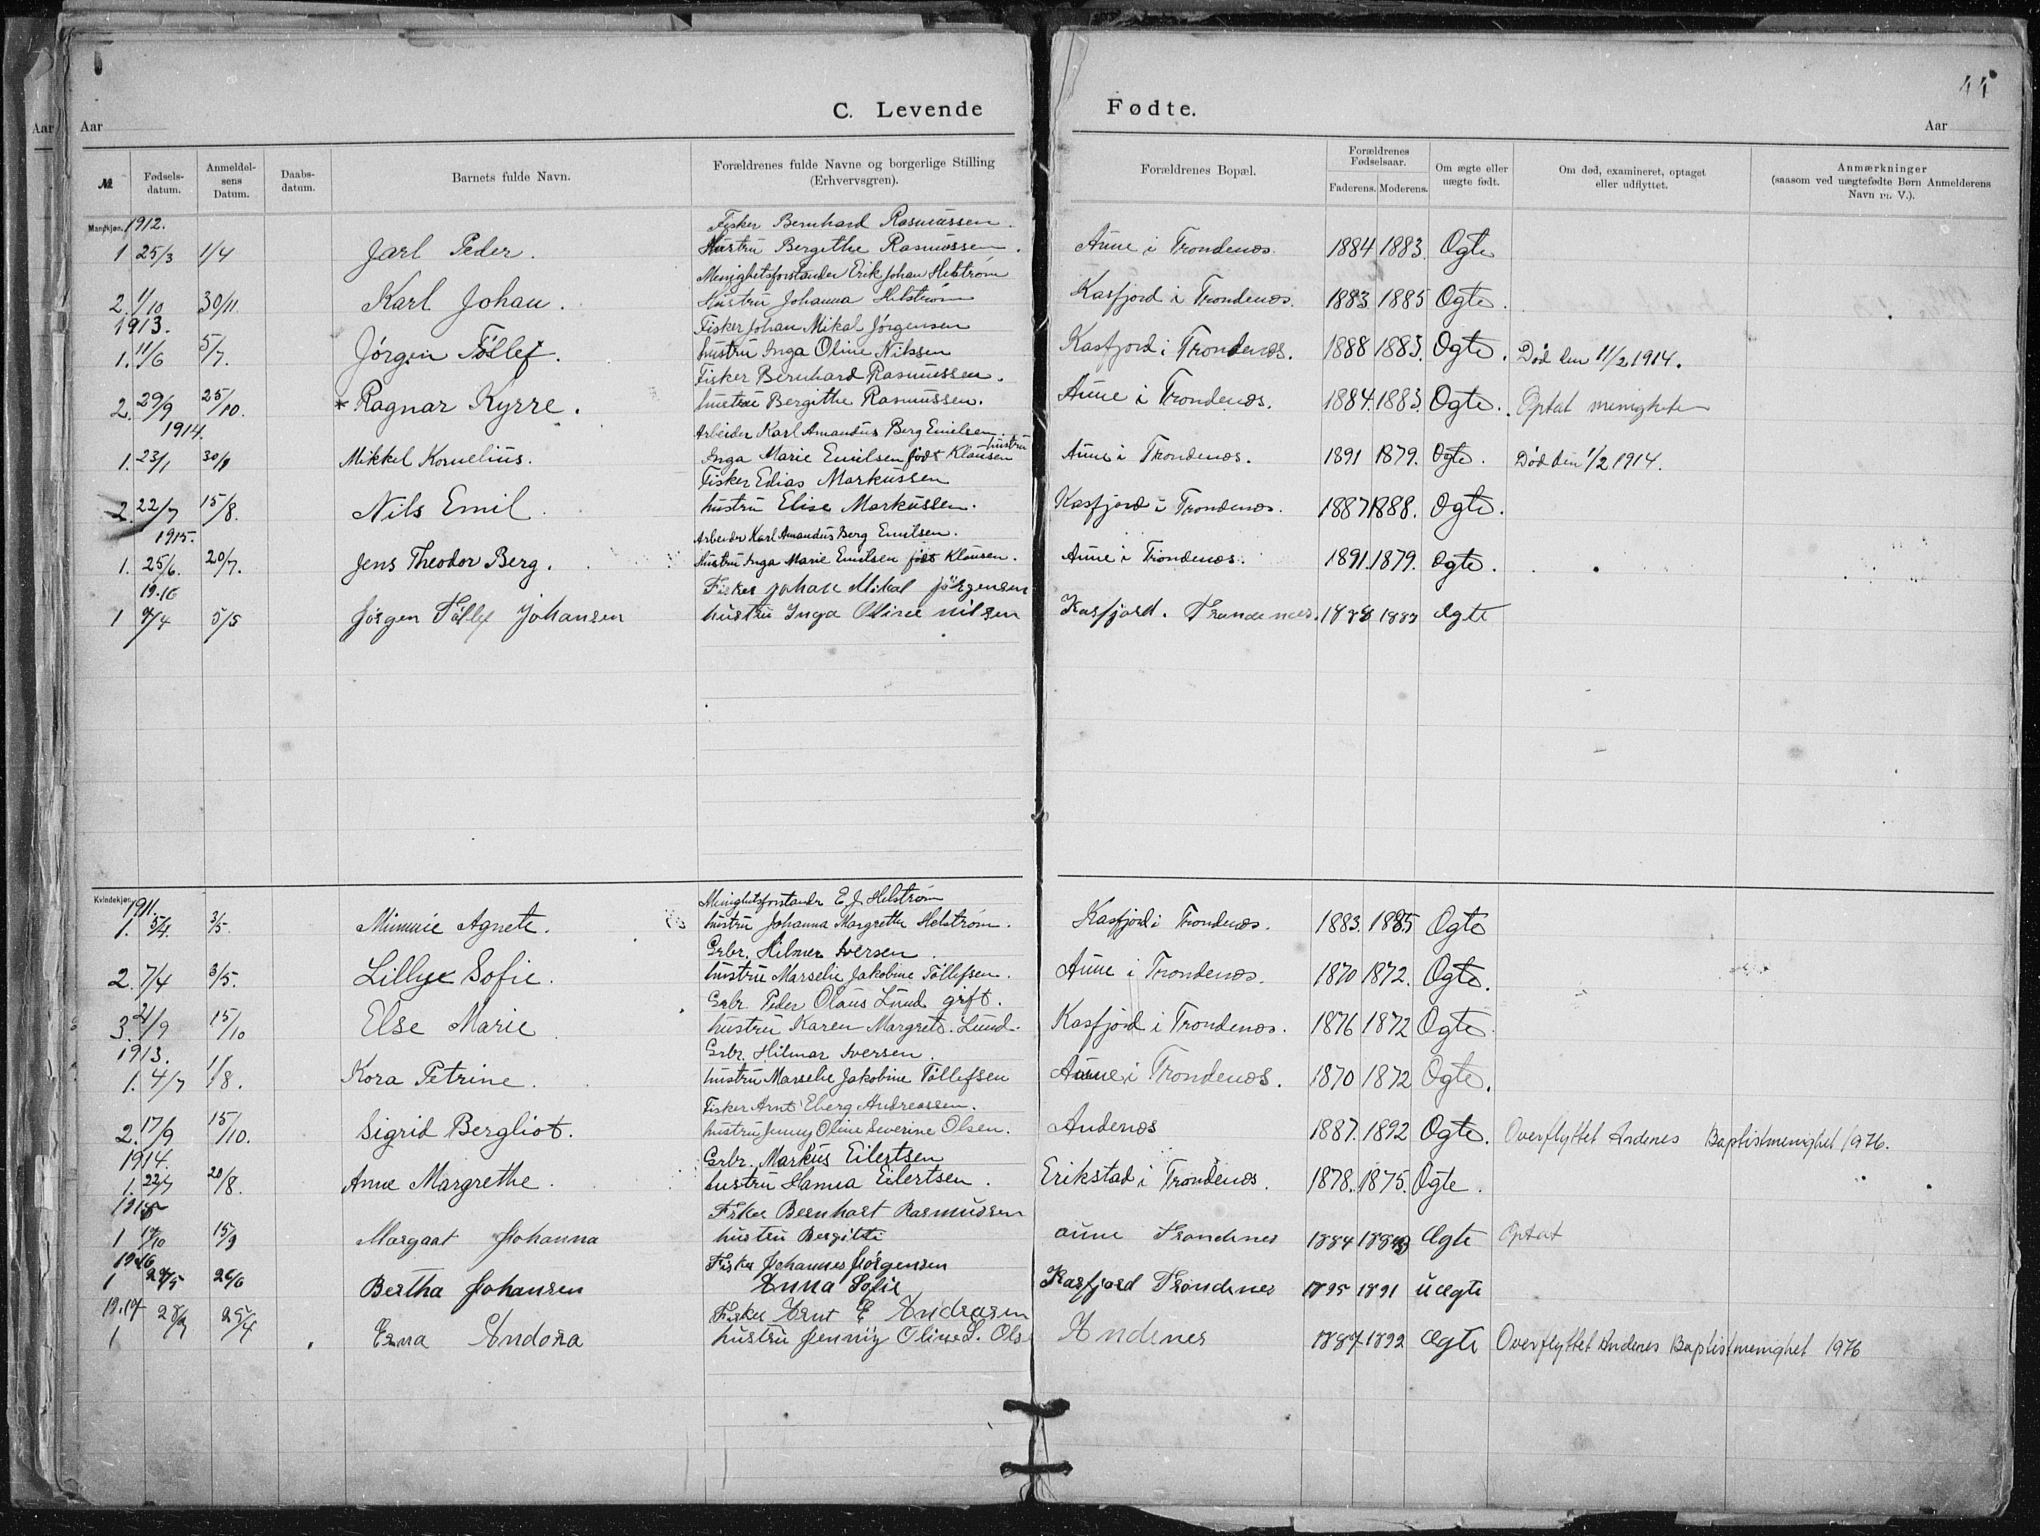 44
C. Levende Fødte.
Aar Aar Aar
№ Fødsels-datum. Anmeldel-sens Datum. Daabs-datum. Barnets fulde Navn. Forældrenes fulde Navne og borgerlige Stilling (Erhvervsgren). Forældrenes Bopæl. Forældrenes Fødselsaar. Faderens. Moderens. Om ægte eller uægte født. Om død, examineret, optaget eller udflyttet. Anmærkninger (saasom ved uægtefødte Børn Anmelderens Navn m. V.).
Mandkjøn. 1912.
Fisker Bernhard Rasmussen.
1 25/3 1/4 Jarl Peder. Hustru Bergithe Rasmussen. Aune i Trondenæs 1884 1883 Ægte
Menighetsforstander Erik Johan Helstrøm
2. 11/10 30/11 Karl Johan. Hustru Johanna Helstrøm Kasfjord i Trondenæs. 1883 1885 Ægte.
1913.
Fisker Johan Mikal Jørgensen
1. 11/6 5/7. Jørgen Tollef. hustru Inga Oline Nilssen Kasfjord i Trondenæs. 1888 1883. Ægte. Død den 11/2 1914.
Fisker Bernhard Rasmussen.
2. 29/9 25/10. * Ragnar Kyrre. hustru Bergithe Rasmussen. Aune i Trondenæs. 1884. 1883. Ægte. Optat menigheten
1914.
Arbeider Karl Amandus Berg Emilsen. hustru
1. 23/1 30/1 Mikkel Kornelius. Inga Marie Emilsen født Klausen Aune i Trondenæs. 1891 1879. Ægte. Død den 1/2 1914.
Fisker Edias Markussen
2. 22/7 15/8. Nils Emil. hustru Elise Markussen. Kasfjord i Trondenæs. 1887 1888. Ægte.
1915.
Arbeider Karl Amandus Berg Emilsen.
1. 25/6. 20/7. Jens Theodor Berg. Hustru Inga Marie Emilsen født Klausen. Aune i Trondenæs. 1891. 1879. Ægte.
1916
Fisker Johan Mikal Jörgensen
1 /4 5/5 Jörgen Tölle Johansen hustru Inga Oline Nilsen Kasfjord. Trondenæs. 1888 1883 Ægte
Kvindekjøn. 1911.
Menighetsforstander E. J. Helstrøm
1. 5/4. 3/5. Minnie Agnete. hustru Johanna Margrethe Helstrøm. Kasfjord i Trondenæs. 1883. 1885 Ægte
Grbr. Hilmer Iversen
2. 7/4 3/5. Lilly Sofie. hustru Marselie Jakobine Tollefsen. Aune i Trondenæs. 1870 1872. Ægte.
Grbr. Peder Olaus Lund gift.
3. 21/9 15/10 Else Marie hustru Karen Margrete Lund. Kasfjord i Trondenæs. 1876 1872 Ægte
1913.
Grbr. Hilmar Iversen.
1. 4/7 1/8. Kora Petrine. hustru Marselie Jakobine Tollefsen Aune i Trondenæs. 1870 1872 Ægte.
Fisker Arnt Eberg Andreassen.
2. 17/9 15/10. Sigrid Bergliot. hustru Jenny Oline Severine Olsen. Andenæs 1887. 1892 Ægte. Overflyttet Andenes Baptistmenighet 1976.
1914.
Grbr. Markus Eilertsen
1. 22/7 20/8. Anne Margrethe. hustru Hanna Eilertsen. Erikstad i Trondenæs. 1878. 1875. Ægte.
1915
Fisker Bernhart Rasmussen
1 /10 15/9 Margaat Johanna hustru Bergitte aune Trondenes 1884 1883 Ægte Optat
1916
Fisker Johannes Jörgensen
1 /5 26/6 Bertha Johansen Anna Sofie Kasfjord Trondenes 1895 1891 uægte
1917
Fisker Arnt E Andrasen
1 25/4 Erna Andora hustru Jenny Oline S. Ols Andenes 1887 1892 Ægte Overflyttet Andenes Baptistmenighet 1976